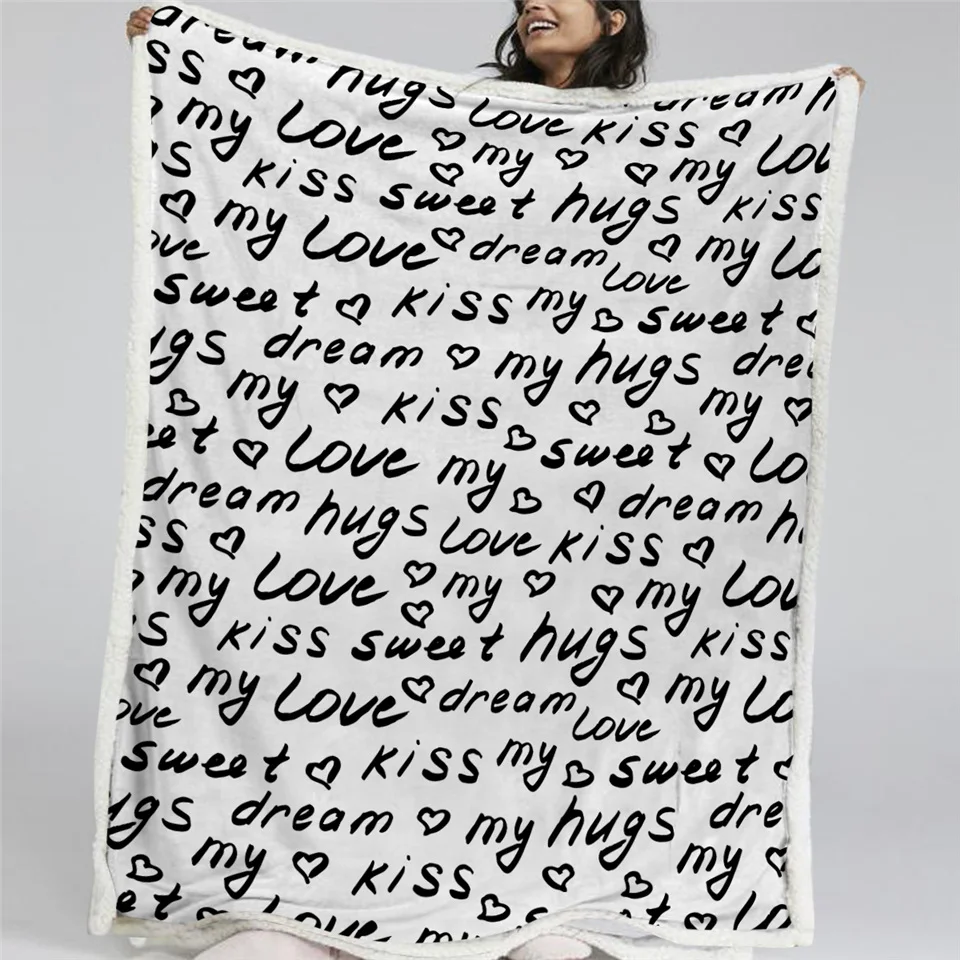 dream hugs love kiss ♡ dream h
ss ♡ my love ♡ my ♡ ♡ my lov
s kiss sweet hugs kiss
♡ my love ♡ dream love ♡ my lo
ove sweet ♡ kiss my ♡ sweet ♡
ugs dream ♡ my hugs drea
♡ my ♡ kiss ♡ ♡ my ♡
eet ♡ love my ♡ sweet ♡ lo
dream hugs love kiss ♡ dream h
ss ♡ my love ♡ my ♡ ♡ my lov
s kiss sweet hugs kiss
♡ my love ♡ dream love ♡ my lo
ove sweet ♡ kiss my ♡ sweet ♡
ugs dream ♡ my hugs dre
♡ my ♡ kiss ♡ ♡ my ♡
et ♡ love my ♡ lo